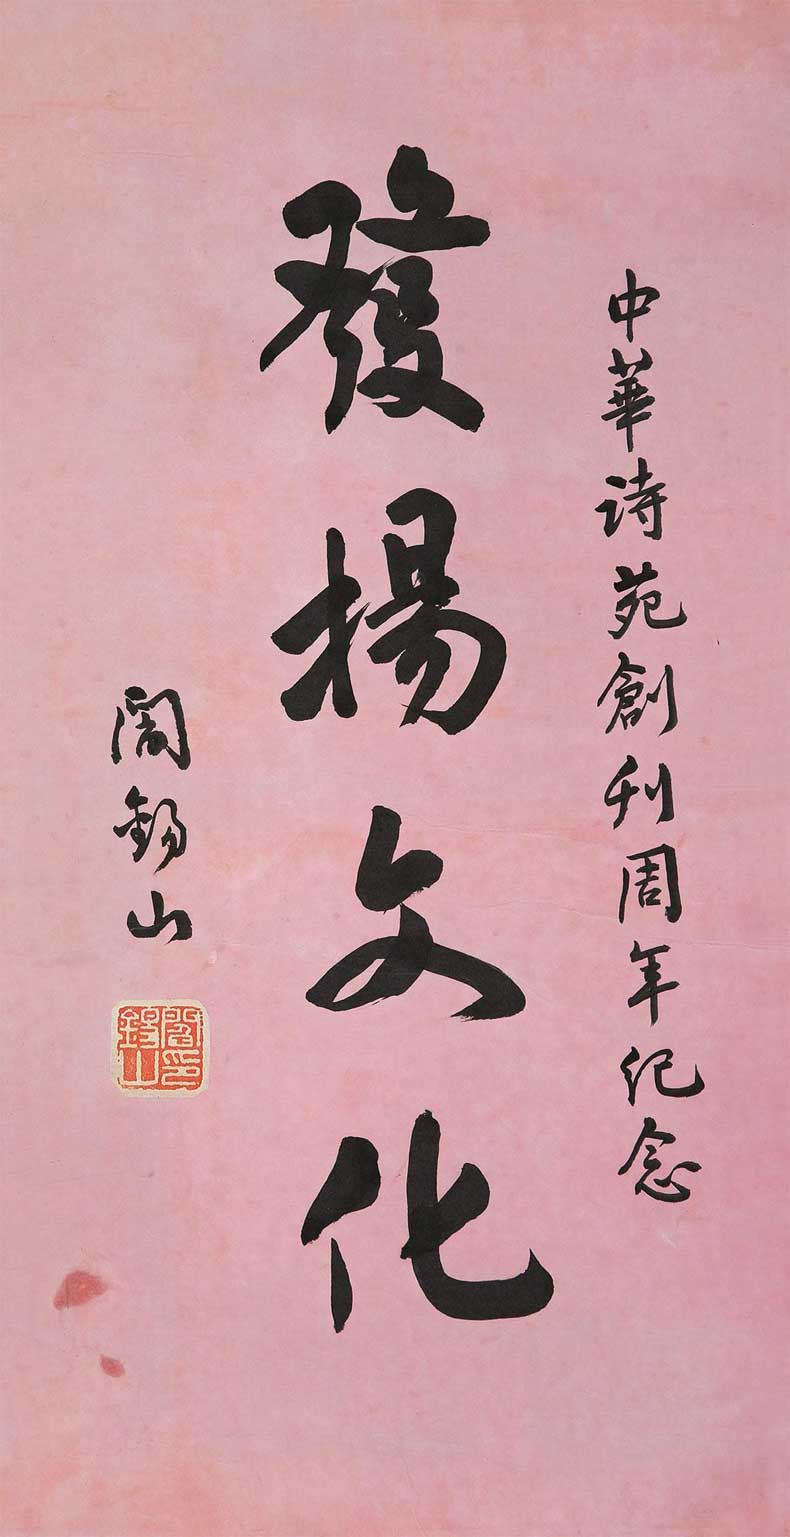 中華诗苑創刊周年纪念
發揚文化
閻錫山
閻錫山印